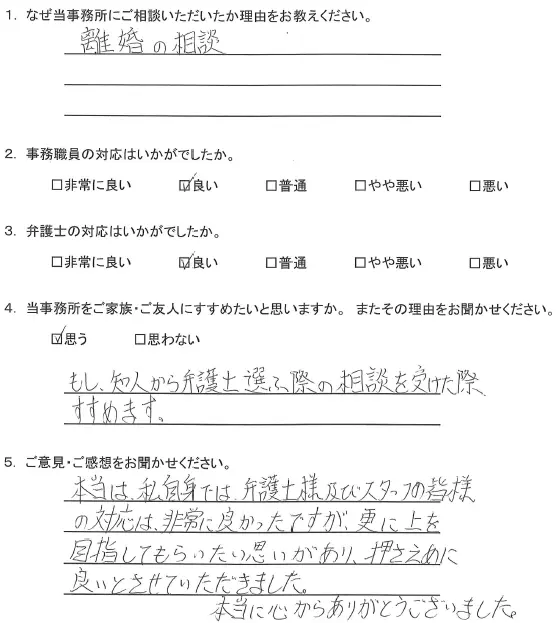 1. なぜ当事務所にご相談いただいたか理由をお教えください。
離婚の相談
2. 事務職員の対応はいかがでしたか。
□非常に良い ☑良い □普通 □やや悪い □悪い
3. 弁護士の対応はいかがでしたか。
□非常に良い ☑良い □普通 □やや悪い □悪い
4. 当事務所をご家族・ご友人にすすめたいと思いますか。 またその理由をお聞かせください。
☑思う □思わない
もし、知人から弁護士選ぶ際の相談を受けた際、
すすめます。
5. ご意見・ご感想をお聞かせください。
本当は、私自身では、弁護士様及びスタッフの皆様
の対応は、非常に良かったですが、更に上を
目指してもらいたい思いがあり、押さえめに
良いとさせていただきました。
本当に心からありがとうございました。